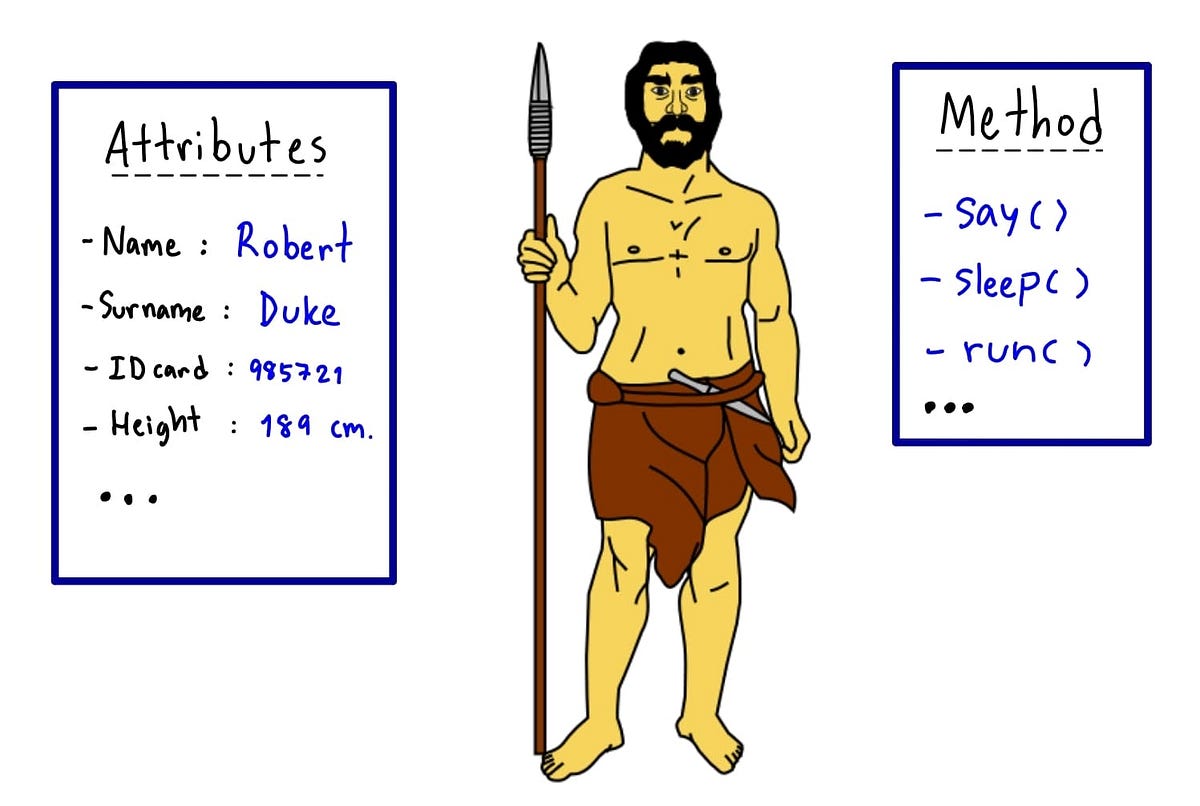 Attributes
- Name : Robert
- Surname : Duke
- ID card : 985721
- Height : 189 cm.
...
Method
- say()
- sleep()
- run()
...